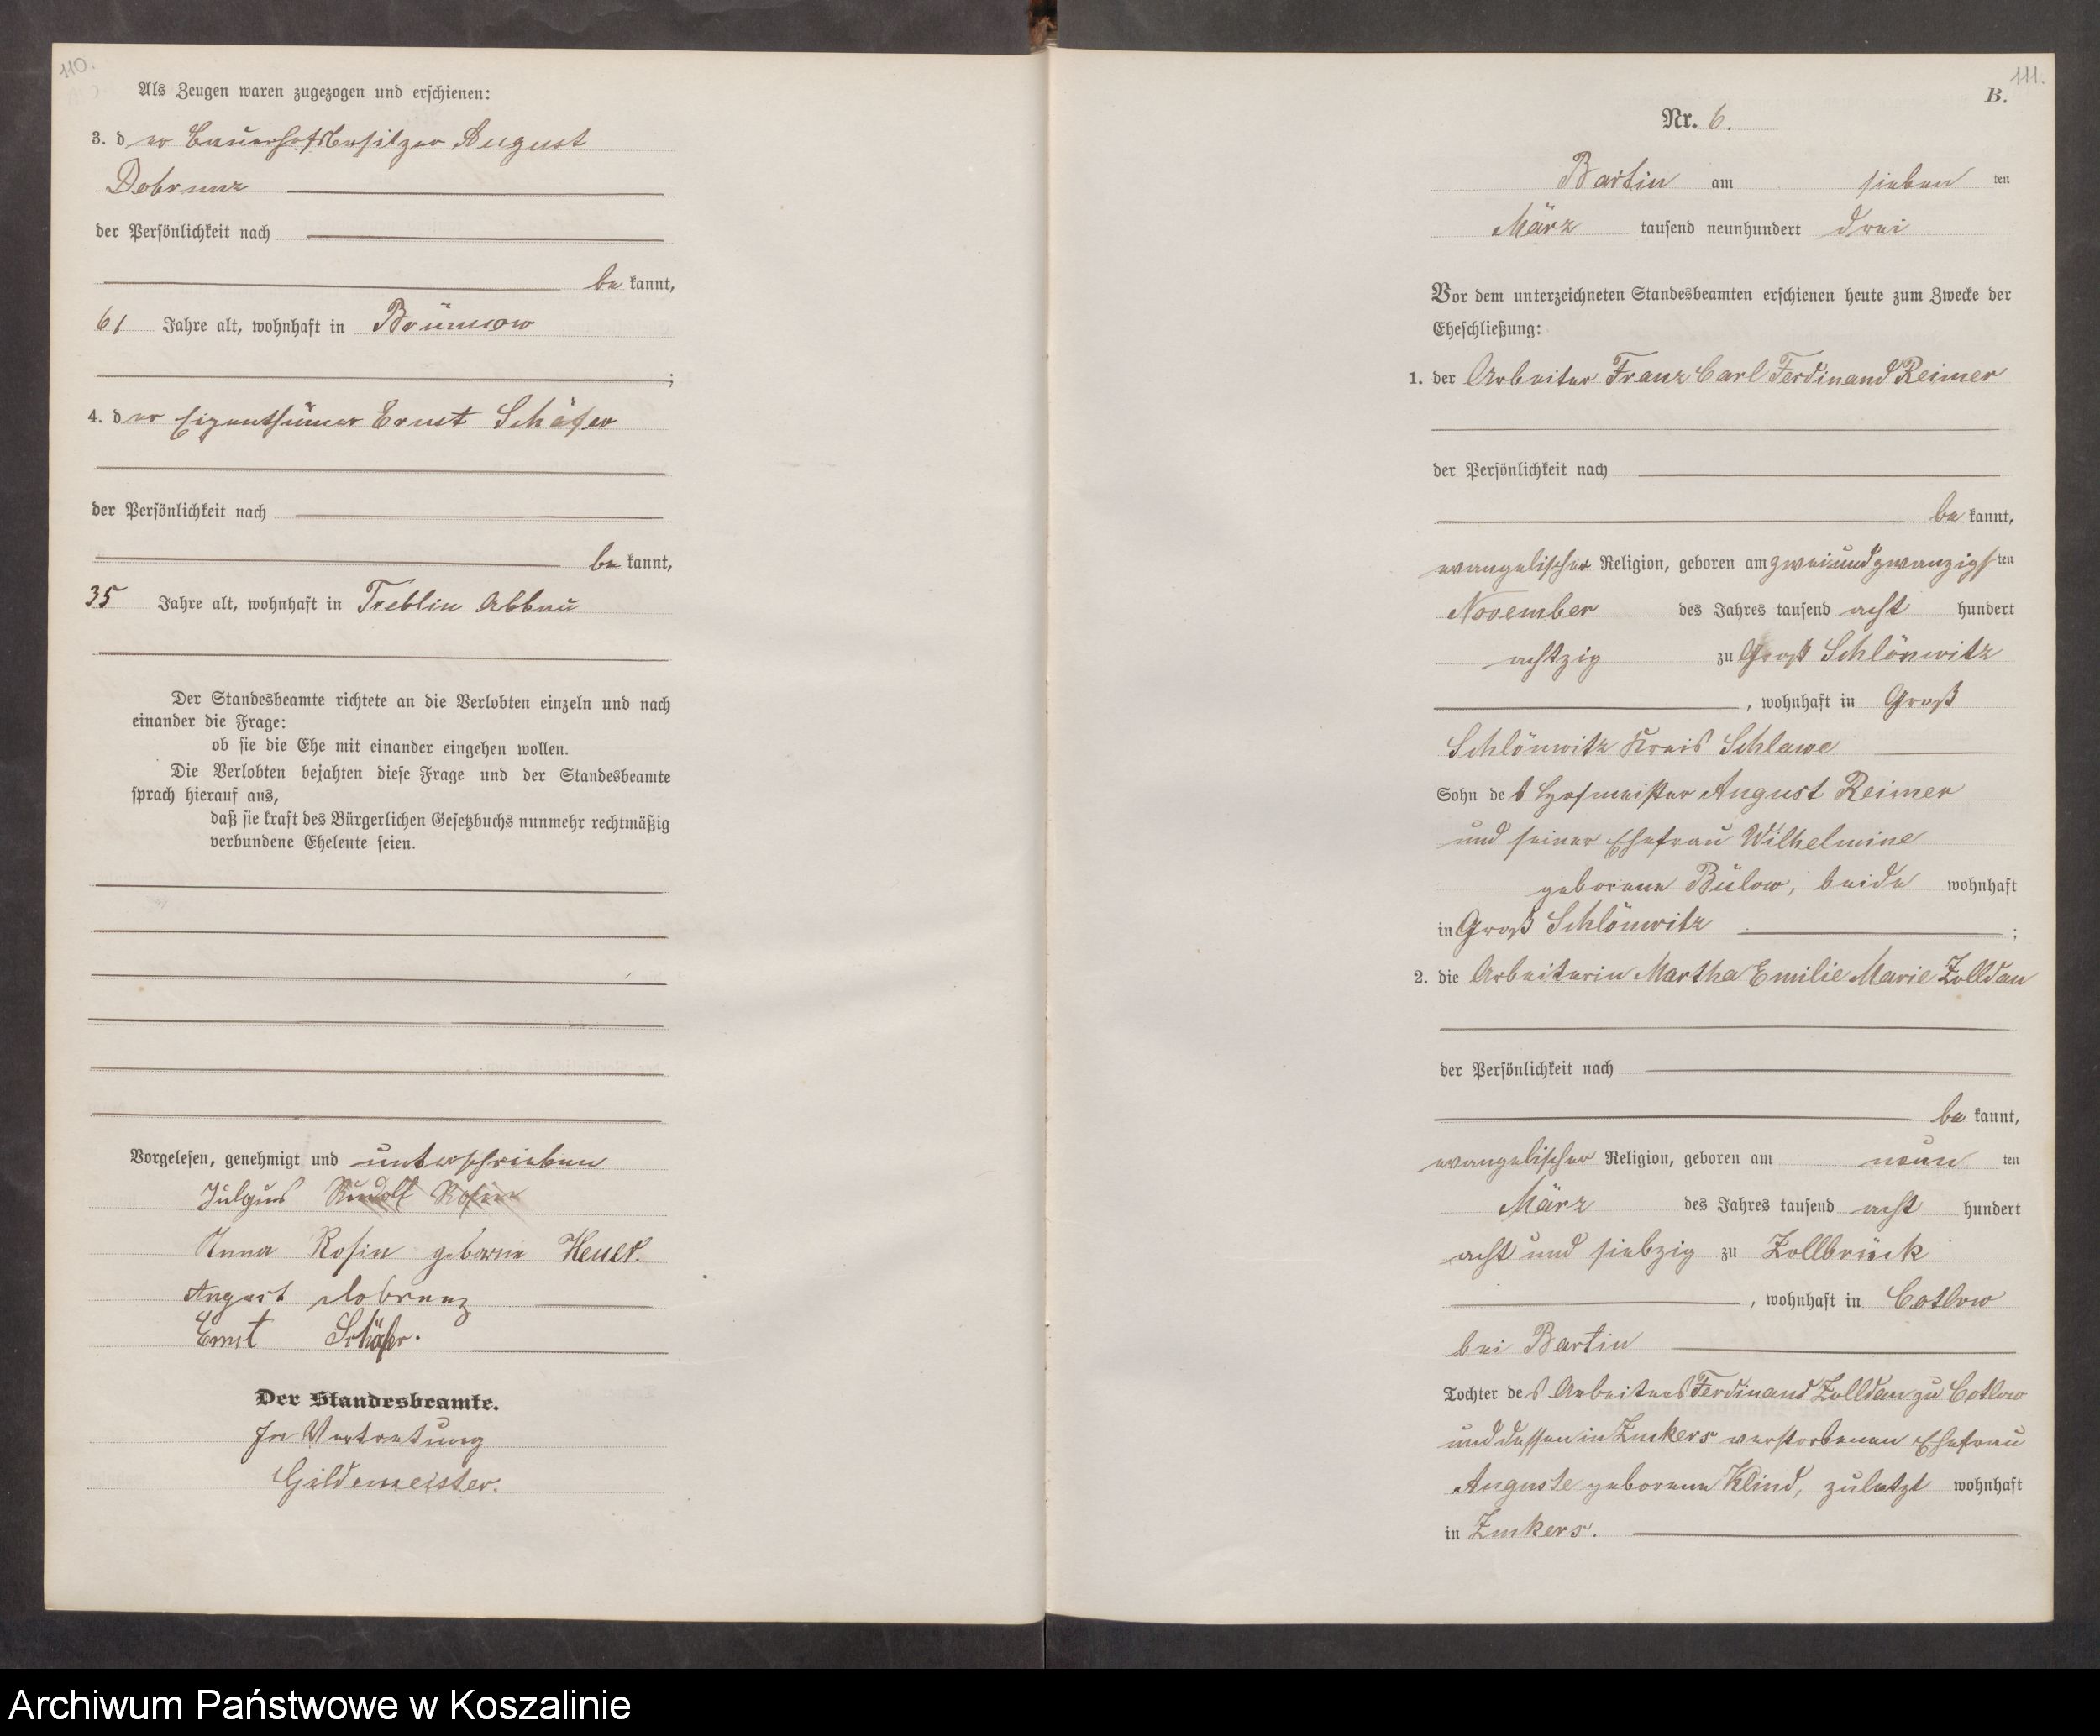 110.
Als Zeugen waren zugezogen und erschienen:
3. der Bauerhofsbesitzer August
Dobrunz
der Persönlichkeit nach
be kannt,
61 Jahre alt, wohnhaft in Brünnow
;
4. der Eigenthümer Ernst Schäfer
der Persönlichkeit nach
be kannt,
35 Jahre alt, wohnhaft in Treblin Abbau
Der Standesbeamte richtete an die Verlobten einzeln und nach
einander die Frage:
ob sie die Ehe mit einander eingehen wollen.
Die Verlobten bejahten diese Frage und der Standesbeamte
sprach hierauf aus,
daß sie kraft des Bürgerlichen Gesetzbuchs nunmehr rechtmäßig
verbundene Eheleute seien.
Vorgelesen, genehmigt und unterschrieben
Rudolf Rosin
Anna Rosin geborne Heuer.
August Dobrunz
Ernst Schäfer.
Der Standesbeamte.
In Vertretung
Gildemeister.
111.
B.
Nr. 6.
Bartin am sieben ten
März tausend neunhundert drei
Vor dem unterzeichneten Standesbeamten erschienen heute zum Zwecke der
Eheschließung:
1. der Arbeiter Franz Carl Ferdinand Reimer
der Persönlichkeit nach
be kannt,
evangelischer Religion, geboren am zweiundzwanzigsten
November des Jahres tausend acht hundert
achtzig zu Groß Schlönwitz
, wohnhaft in Groß
Schlönwitz Kreis Schlawe
Sohn des Hofmeister August Reimer
und seiner Ehefrau Wilhelmine
geborene Bülow, beide wohnhaft
in Groß Schlönwitz ;
2. die Arbeiterin Martha Emilie Marie Zolldan
der Persönlichkeit nach
be kannt,
evangelischer Religion, geboren am neun ten
März des Jahres tausend acht hundert
acht und siebzig zu Zollbrück
, wohnhaft in Cotlow
bei Bartin
Tochter des Arbeiters Ferdinand Zolldan zu Cotlow
und dessen in Zuckers verstorbenen Ehefrau
Auguste geborene Klind, zuletzt wohnhaft
in Zuckers.
Archiwum Państwowe w Koszalinie